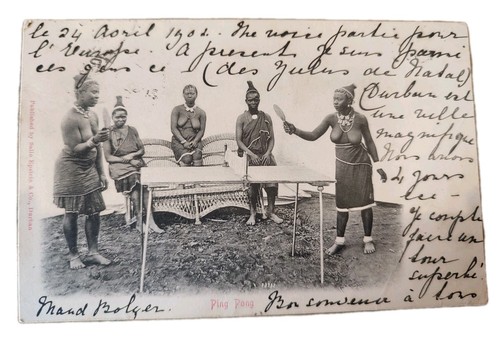 le 24 Avril 1902. Me voice partie pour
l'Europe. A present je suis parmi
ces gens ci (des Zulus de Natal)
Durban est
une ville
magnifique
Nous avons
4 jours
ici -
Je compte
faire un
tour
superbe.
Bon souvenir à tous
Maud Bolger.
Ping Pong
Published by Sallo Epstein & Co., Durban